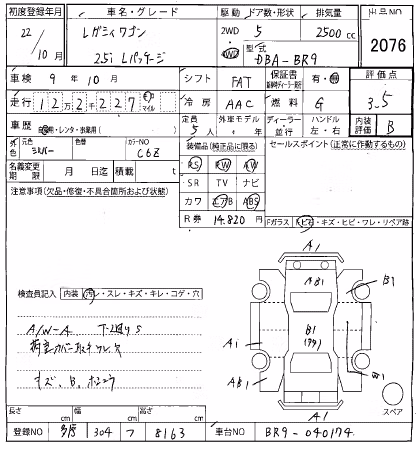 初度登録年月 車名・グレード 駆動 ドア数・形状 排気量 出品NO
22/10月 レガシィワゴン 2WD 4WD 5 2500cc 2076
2.5i Lパッケージ 型式 DBA-BR9
車検 9年10月 シフト FAT 保証書 有・無 評価点
走行 12万2千227 キロ マイル 冷房 AAC 燃料 G 3.5
車歴 自家用・レンタ・事業用( ) 定員 5人 外車モデル 年 ディーラー 並行 ハンドル 左・右 内装評価 B
外色 元色 シルバー 色替 カラーNO C6Z 装備品(純正品に限る) セールスポイント(正常に作動するもの)
名義変更期限 月 日迄 積載 t PS PW AW
注意事項(欠品・修復・不具合箇所および状態) SR TV ナビ
カワ エアB ABS
R券 14,820円 Fガラス 飛石・キズ・ヒビ・ワレ・リペア跡
A1
AB1
B1
検査員記入 内装 汚レ・スレ・キズ・キレ・コゲ・穴
A/W-A
B1
A1
キズ、B、
AB1
B1
スペア
A1
長さ cm 幅 cm 高さ cm
登録NO 多摩 304 フ 8163 車台NO BR9-040174